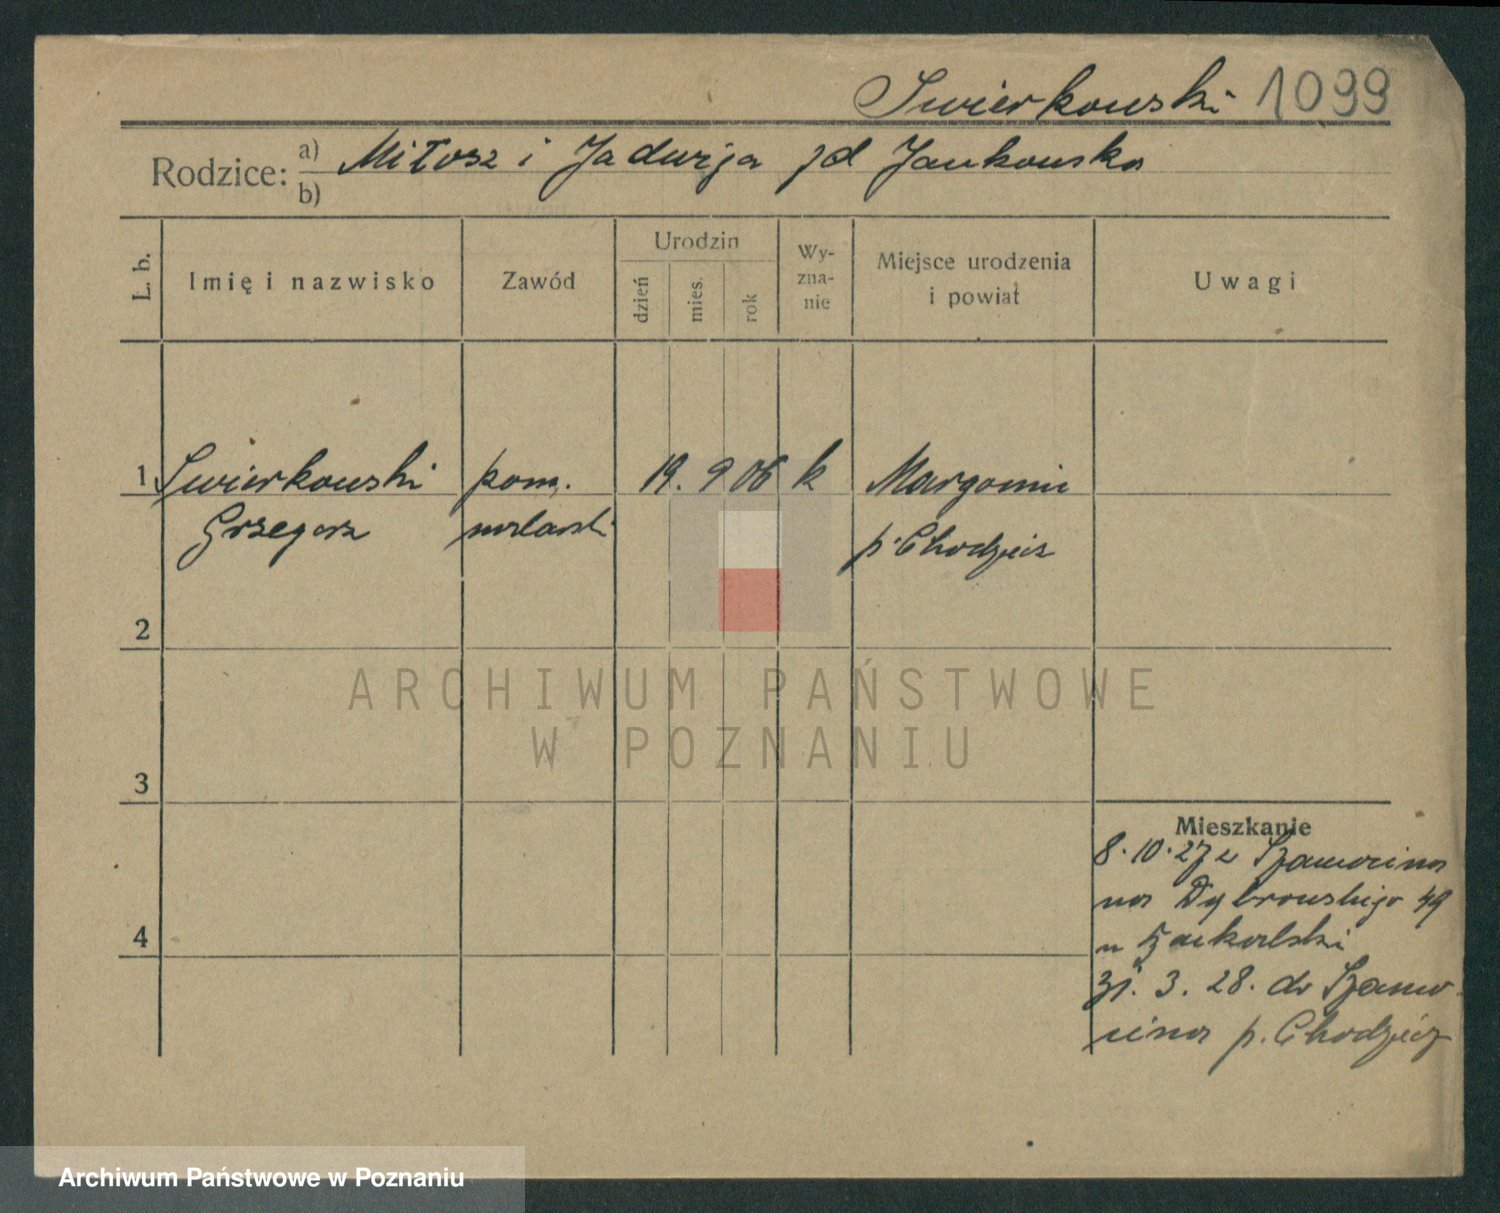 Swierkowski 1099
Rodzice: a) Miłosz i Jadwiga zd Jankowska
b)
L. b. Imię i nazwisko Zawód Urodzin dzień mies. rok Wy-zna-nie Miejsce urodzenia i powiat Uwagi
1 Swierkowski pom. 19. 9 06 k Margonin
Grzegorz malarski p. Chodzież
2
ARCHIWUM PAŃSTWOWE
W POZNANIU
3
Mieszkanie
8.10.27 z Szamocina
na Dąbrowskiego 49
4
u
31. 3. 28. do Szamo
cina p. Chodzież
Archiwum Państwowe w Poznaniu